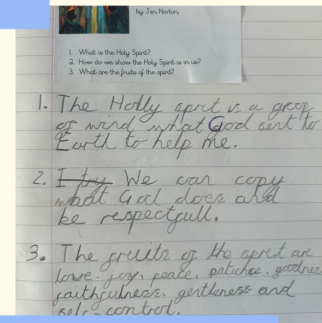 by Jen Norton.
1. What is the Holy Spirit?
2. How do we show the Holy Spirit is in us?
3. What are the fruits of the spirit?
1. The Holly sprit is a
of wind what God sent to
Earth to help me.
2. I try We can copy
what God does and
be respectfull.
3. The fruits of the sprit are
love. joy, peace, patience, goodness
faithfulness, gentleness and
self-control.